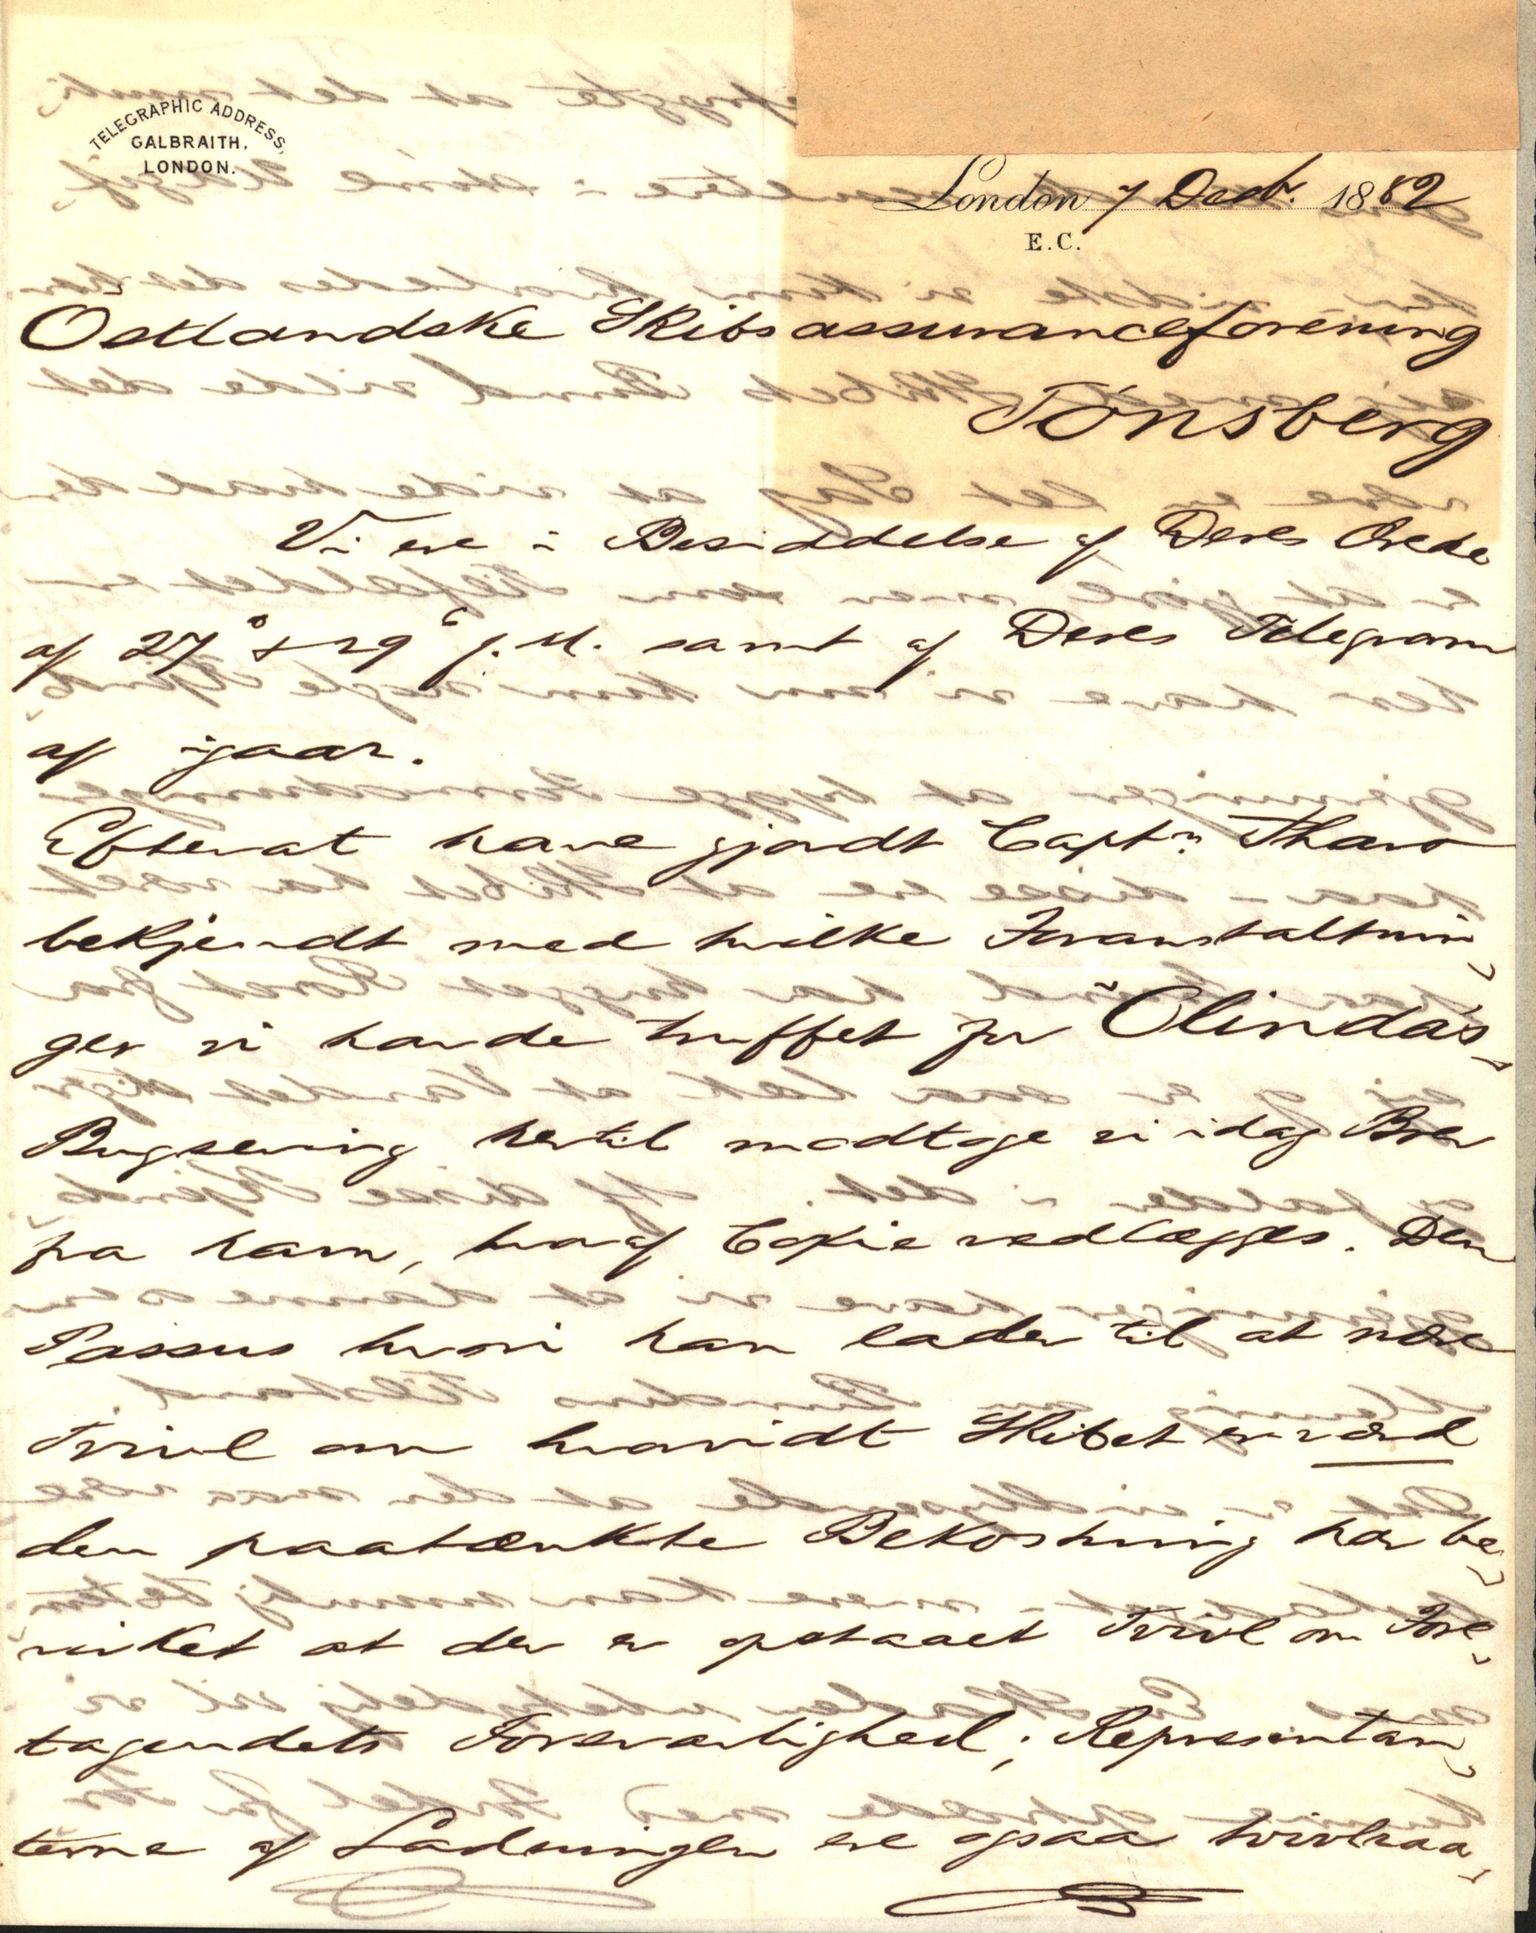 TELEGRAPHIC ADDRESS,
GALBRAITH,
LONDON.
London 7 Decbr. 1882
E.C.
Östlandske Skibsassuranceforening
Tönsberg
Vi ere i Besiddelse af Deres Ærede
af 27de & 29de f. M. samt af Deres Telegram
af igaar.
Efterat have gjordt Captn.
bekjendt med hvilke Foranstaltnin-
ger vi havde truffet for "Olinda's"
Bugsering hertil modtoge vi idag Brev
fra ham, hvoraf Copie vedlægges. Den
Passus hvori han lader til at være
Tvivl om hvorvidt Skibet er værd
den paatænkte Bekostning har be-
virket at der er opstaaet Tvivl om Fore-
tagendets Forsvarlighed; Representan-
terne af Ladningen ere ogsaa tvivlraa-